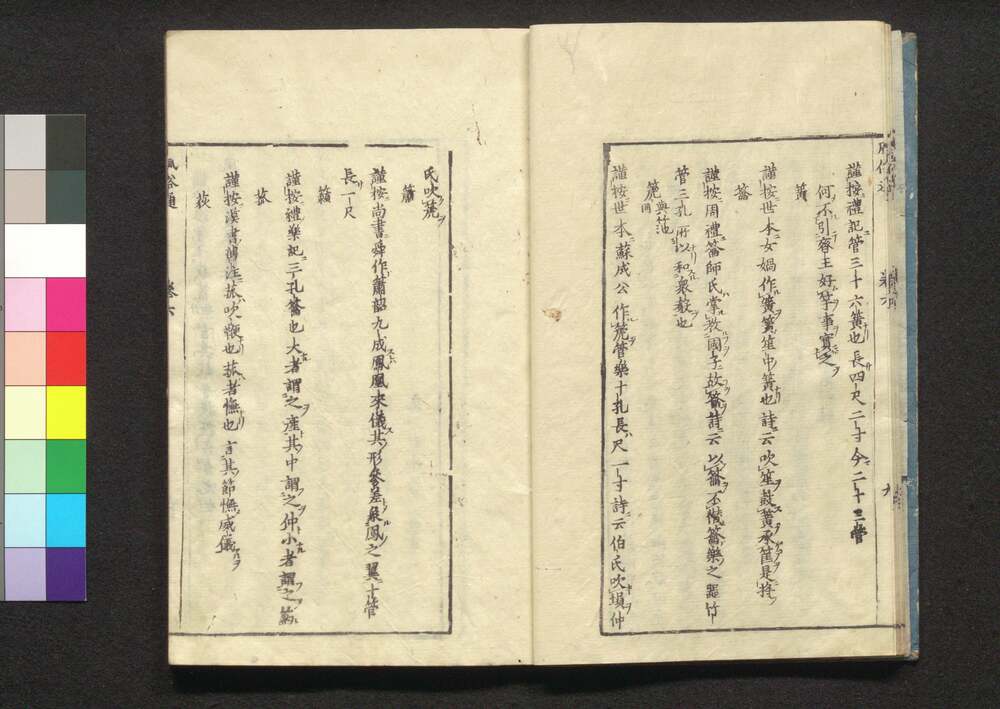 謹按禮記管三十六簧也長四尺二寸今二十三管
何不引齊王好竽事實之
簧
謹按世本女媧作簧簧笙中簧也詩云吹笙鼓簧承筐是將
籥
謹按周禮籥師氏掌教國子故籥詩云以籥不僭籥樂之器竹
管三孔所以和衆聲也
箎與竾同
謹按世本蘇成公作箎管樂十孔長尺一寸詩云伯氏吹塤仲
氏吹箎
簫
謹按尚書舜作簫韶九成鳳凰來儀其形參差象鳳之翼十管
長一尺
籟
謹按禮樂記三孔籥也大者謂之產其中謂之仲小者謂之箹
菰
謹按漢書舊注菰吹鞭也菰者憮也言其節憮威儀
荻
風俗通
卷六